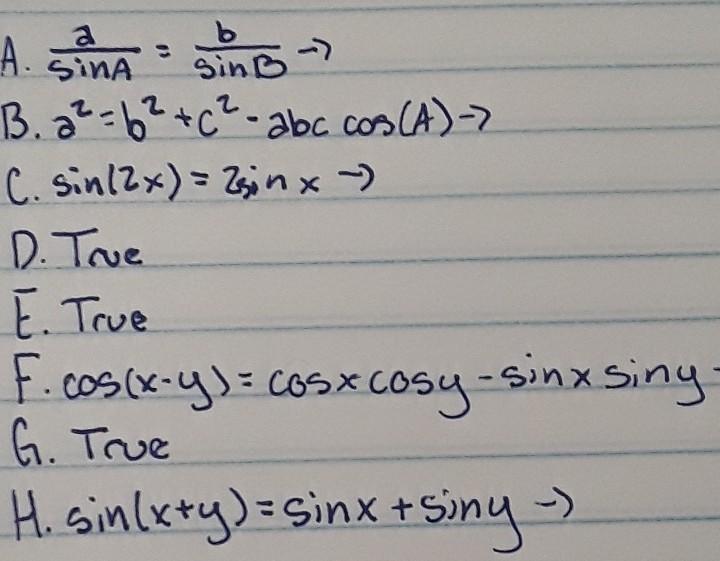 A. a/sinA = b/sinB →
B. a² = b² + c² - abc cos(A) →
C. sin(2x) = 2sin x →
D. True
E. True
F. cos(x-y) = cosx cosy - sinx siny -
G. True
H. sin(x+y) = sinx + siny →